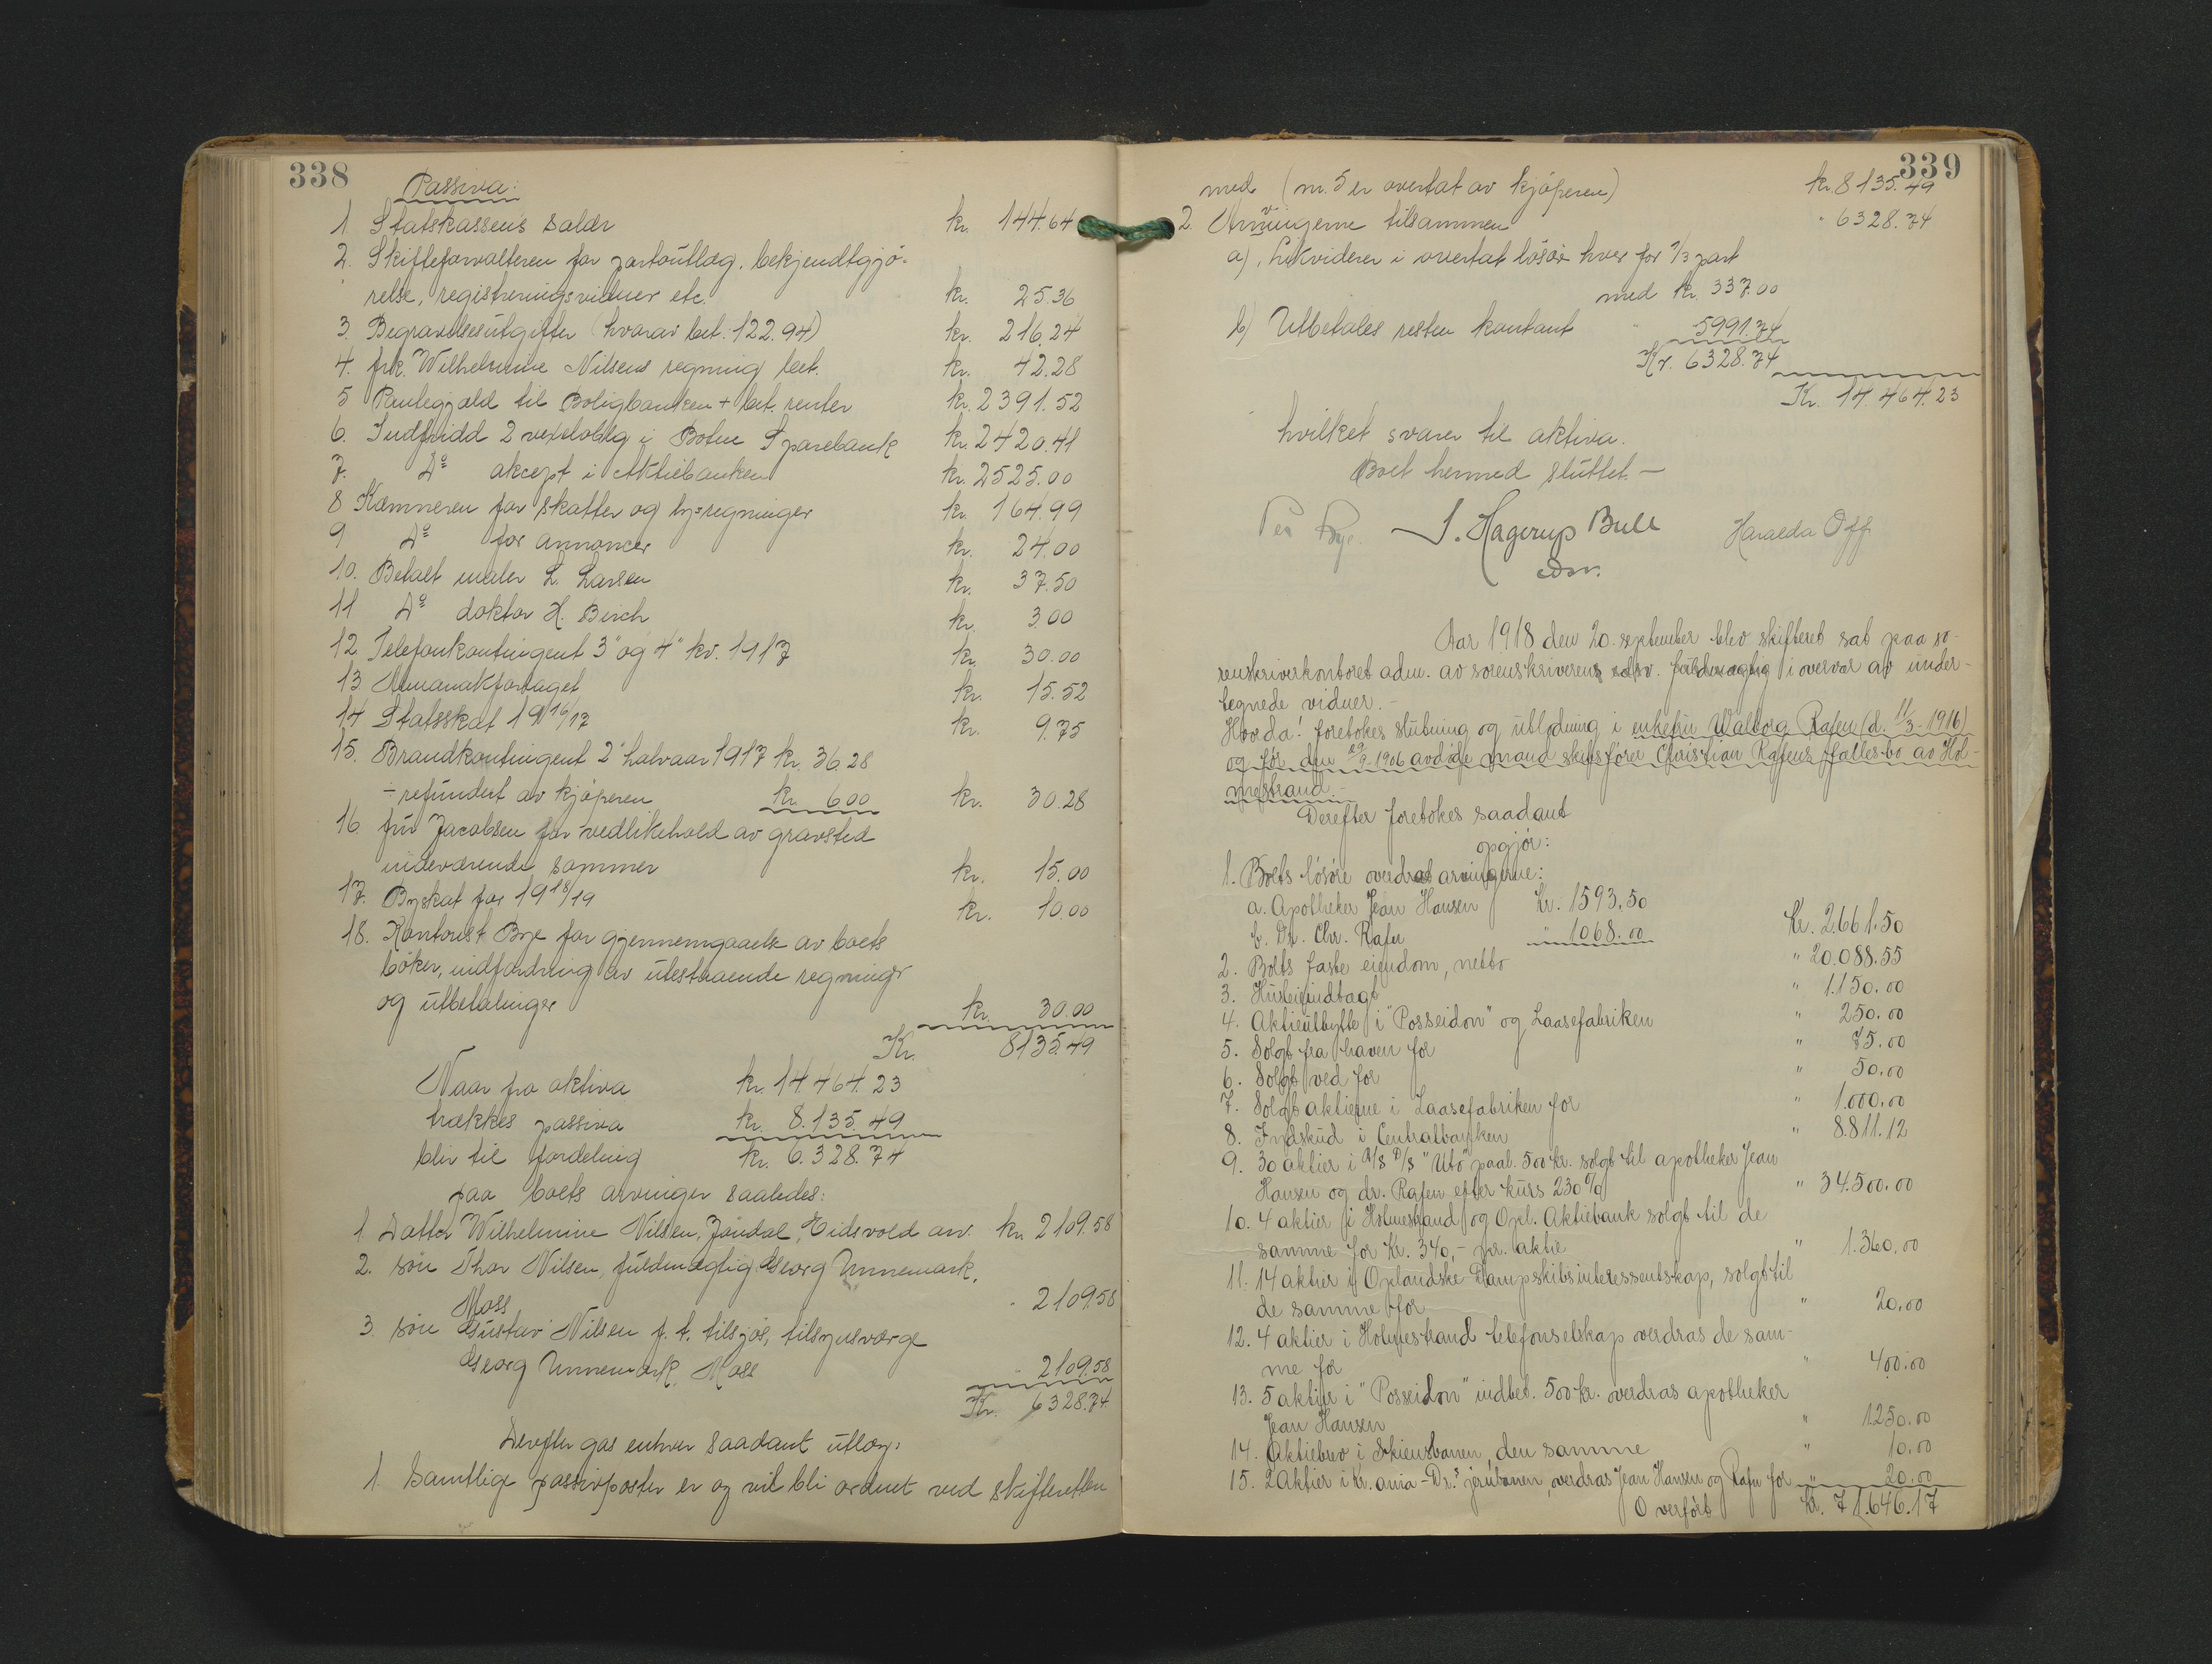 338
Passiva:
1. Statskassens salær kr. 144.64
2. Skifteforvalteren for portoutlæg, bekjendtgjö-
relse, registreringsvidner etc. kr. 25.36
3. Begravelsesutgifter (hvorav bet. 122.94) kr. 216.24
4. frk. Wilhelmine Nilsens regning bet. kr. 42.28
5 Pantegjæld til Boligbanken + bet. renter kr. 2391.52
6. Indfridd 2 vexeloblig i Botne Sparebank kr. 2420.41
7. Do akcept i Aktiebanken kr. 2525.00
8 Kæmneren for skatter og lysregninger kr. 164.99
9 Do for annoncer kr. 24.00
10. Betalt maler L. Larsen kr. 37.50
11 Do doktor H. Berch kr. 3.00
12 Telefonkontingent 3" og 4" kv. 1917 kr. 30.00
13 Almanakforlaget kr. 15.52
14 Statsskat 1916/17 kr. 9.75
15. Brandkontingent 2' halvaar 1917 kr. 36.28
- refundert av kjøperen kr. 6.00 kr. 30.28
16. fru Jacobsen for vedlikehold av gravsted
indeværende sommer kr. 15.00
17. Byskat for 1918/19 kr. 10.00
18. Kontorist Bye for gjennemgaaelse av boets
böker, indfordring av utestaaende regninger
og utbetalinger kr. 30.00
Kr. 8135.49
Naar fra aktiva kr. 14464.23
trækkes passiva kr. 8.135.49
blir til fordeling kr. 6.328.74
paa boets arvinger saaledes:
1. Datter Wilhelmine Nilsen, Jöndal, Eidsvold arv. kr. 2109.58
2. sön Thor Nilsen, fuldmægtig Georg Unnemark,
Moss " 2109.58
3. sön Gustav Nilsen f. t. tilsjös, tilsynsværge
Georg Unnemark, Moss " 2109.58
Kr. 6328.74
Derefter gas enhver saadant utlæg:
1. Samtlige passivposter er og vil bli ordnet ved skifteretten
339
med (nr. 5 er overtat av kjöperen) kr. 8135.49
2. Arvingerne tilsammen " 6328.74
a), Likviderer i overtat lösöre hver for 1/3 part
med kr. 337.00
b) Utbetales resten kontant " 5991.74
Kr. 6328.74
Kr. 14.464.23
hvilket svarer til aktiva.
Boet hermed sluttet. —
Per Bye. J. Hagerup Bull Haralda Off
edsv.
Aar 1918 den 20. september blev skifteret sat paa so-
renskriverkontoret adm. av sorenskriverens edsv. fuldmægtig i overvær av under-
tegnede vidner. -
Hvorda! foretokes slutning og utlodning i enkefru Walborg Rafen (d. 11/3-1916)
og før den 29/9-1906 avdöde mand skibsförer Christian Rafens fælles bo av Hol-
mestrand. -
Derefter foretokes saadant
opgjör:
1. Boets lösöre overdrat arvingerne:
a. Apotheker Jean Hansen Kr. 1593.50
b. Dr. Chr. Rafen " 1068.00 Kr. 2.661.50
2. Boets faste eiendom, netto " 20.088.55
3. Husleieindtægt " 1.150.00
4. Aktieutbytte i "Posseidon" og Laasefabriken " 250.00
5. Solgt fra haven for " 75.00
6. Solgt ved for " 50.00
7. Solgt aktierne i Laasefabriken for " 1.000.00
8. Indskud i Centralbanken " 8.811.12
9. 30 aktier i A/S D/S "Uto" paal. 500 kr. solgt til apotheker Jean
Hansen og dr. Rafen efter kurs 230% " 34.500.00
10. 4 aktier i Holmestrand og Opl. Aktiebank solgt til de
samme for kr. 340,- pr. aktie " 1.360.00
11. 14 aktier i Oplandske Dampskibsinteressentskap, solgt til
de samme for " 20.00
12. 4 aktier i Holmestrand telefonselskap overdras de sam-
me for " 400.00
13. 5 aktier i "Posseidon" indbet. 500 kr. overdras apotheker
Jean Hansen " 1250.00
14. Aktiebrev i Skiensbanen, den samme " 10.00
15. 2 Aktier i Kr.ania-Dr.s jernbanen, overdras Jean Hansen og Rafen for " 20.00
Overført Kr. 71.646.17